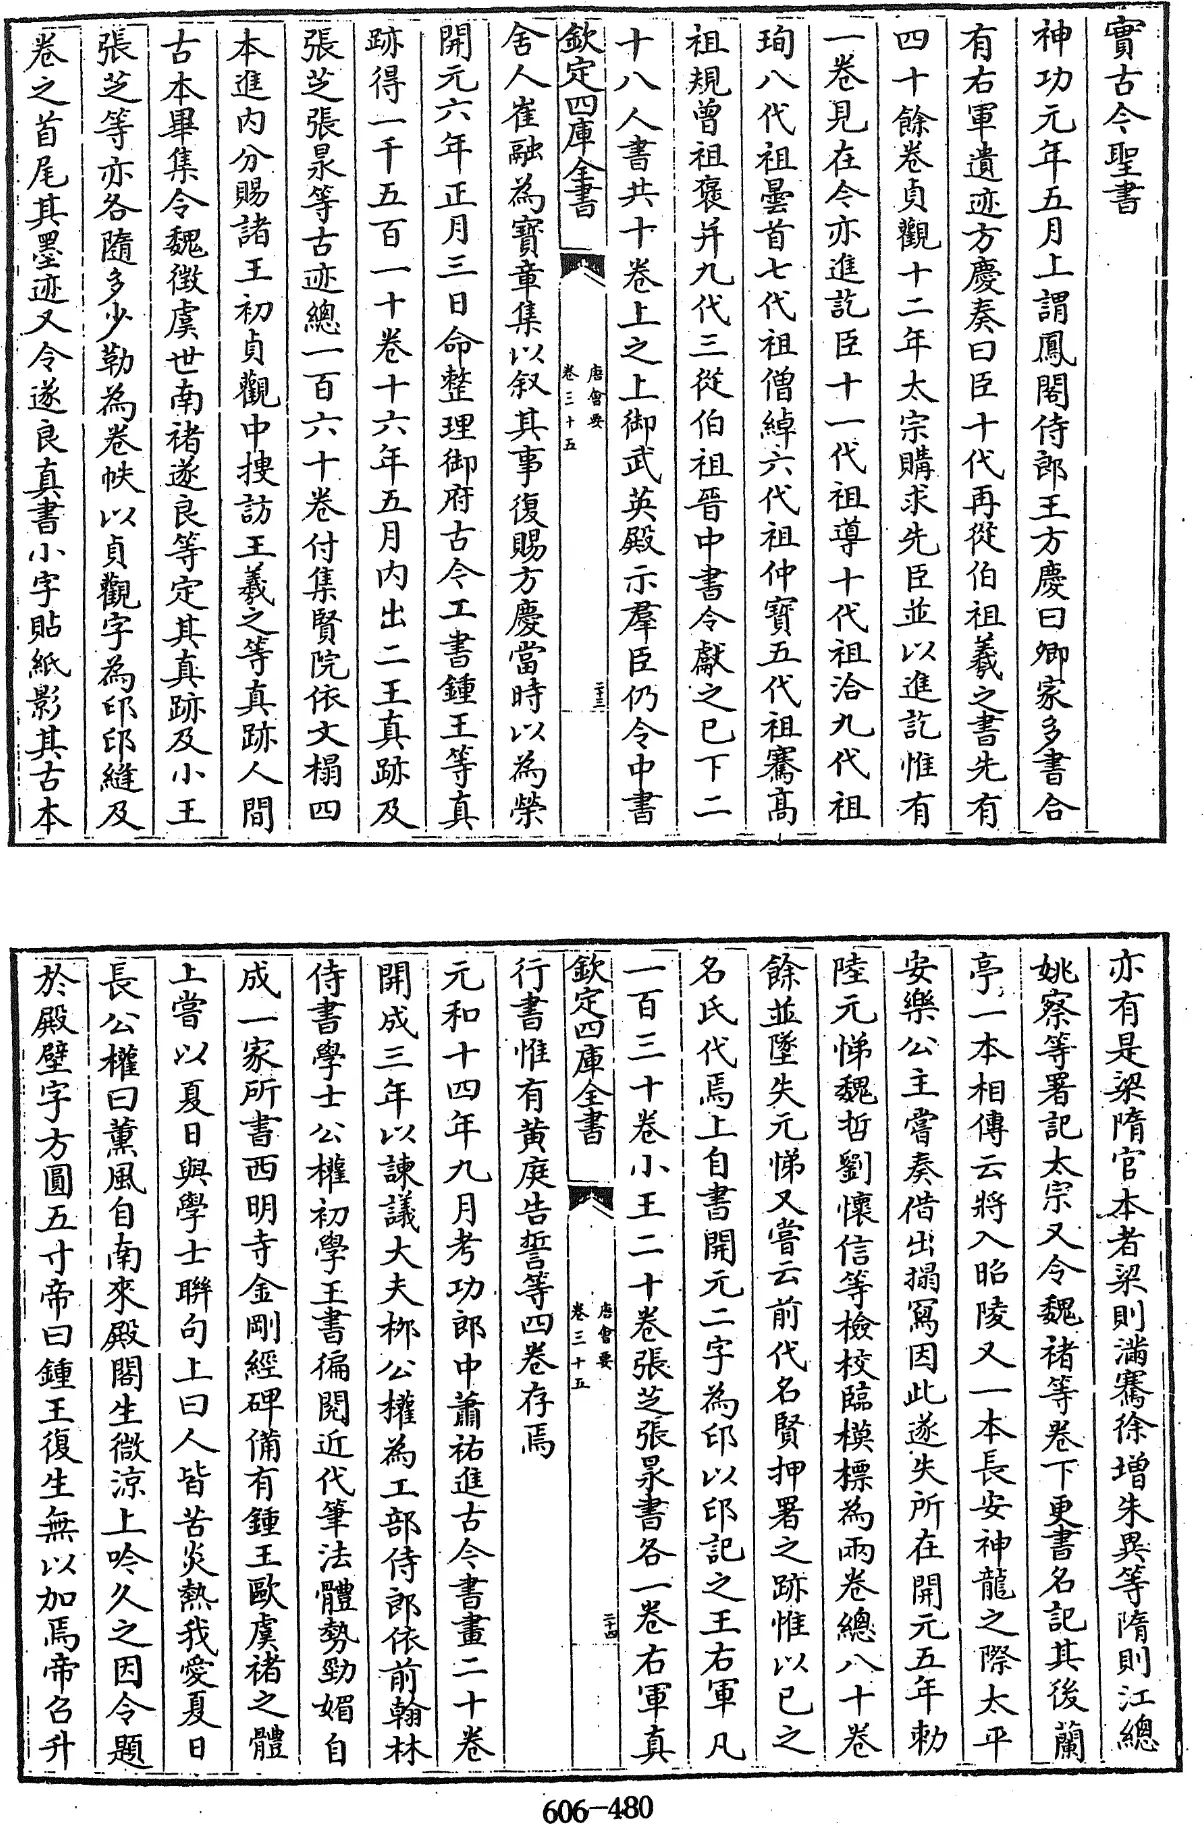 實古今聖書
神功元年五月上謂鳳閣侍郎王方慶曰卿家多書合
有右軍遺迹方慶奏曰臣十代再從伯祖羲之書先有
四十餘卷貞觀十二年太宗購求先臣並以進訖惟有
一卷見在今亦進訖臣十一代祖導十代祖洽九代祖
珣八代祖曇首七代祖僧綽六代祖仲寶五代祖騫高
祖規曾祖褒并九代三從伯祖晉中書令獻之已下二
十八人書共十卷上之上御武英殿示羣臣仍令中書
欽定四庫全書
唐會要
卷三十五
二十三
舍人崔融為寶章集以叙其事復賜方慶當時以為榮
開元六年正月三日命整理御府古今工書鍾王等真
跡得一千五百一十卷十六年五月內出二王真跡及
張芝張昶等古迹總一百六十卷付集賢院依文榻四
本進內分賜諸王初貞觀中搜訪王羲之等真跡人間
古本畢集令魏徵虞世南褚遂良等定其真跡及小王
張芝等亦各隨多少勒為卷帙以貞觀字為印印縫及
卷之首尾其墨迹又令遂良真書小字貼紙影其古本
亦有是梁隋官本者梁則滿騫徐增朱異等隋則江總
姚察等署記太宗又令魏褚等卷下更書名記其後蘭
亭一本相傳云將入昭陵又一本長安神龍之際太平
安樂公主嘗奏借出搨寫因此遂失所在開元五年勅
陸元悌魏哲劉懷信等檢校臨模標為兩卷總八十卷
餘並墜失元悌又嘗云前代名賢押署之跡惟以已之
名氏代焉上自書開元二字為印以印記之王右軍凡
一百三十卷小王二十卷張芝張昶書各一卷右軍真
欽定四庫全書
唐會要
卷三十五
二十四
行書惟有黃庭告誓等四卷存焉
元和十四年九月考功郎中蕭祐進古今書畫二十卷
開成三年以諫議大夫柳公權為工部侍郎依前翰林
侍書學士公權初學王書徧閱近代筆法體勢勁媚自
成一家所書西明寺金剛經碑備有鍾王歐虞褚之體
上嘗以夏日與學士聯句上曰人皆苦炎熱我愛夏日
長公權曰薰風自南來殿閣生微涼上吟久之因令題
於殿壁字方圓五寸帝曰鍾王復生無以加焉帝召升
606-480